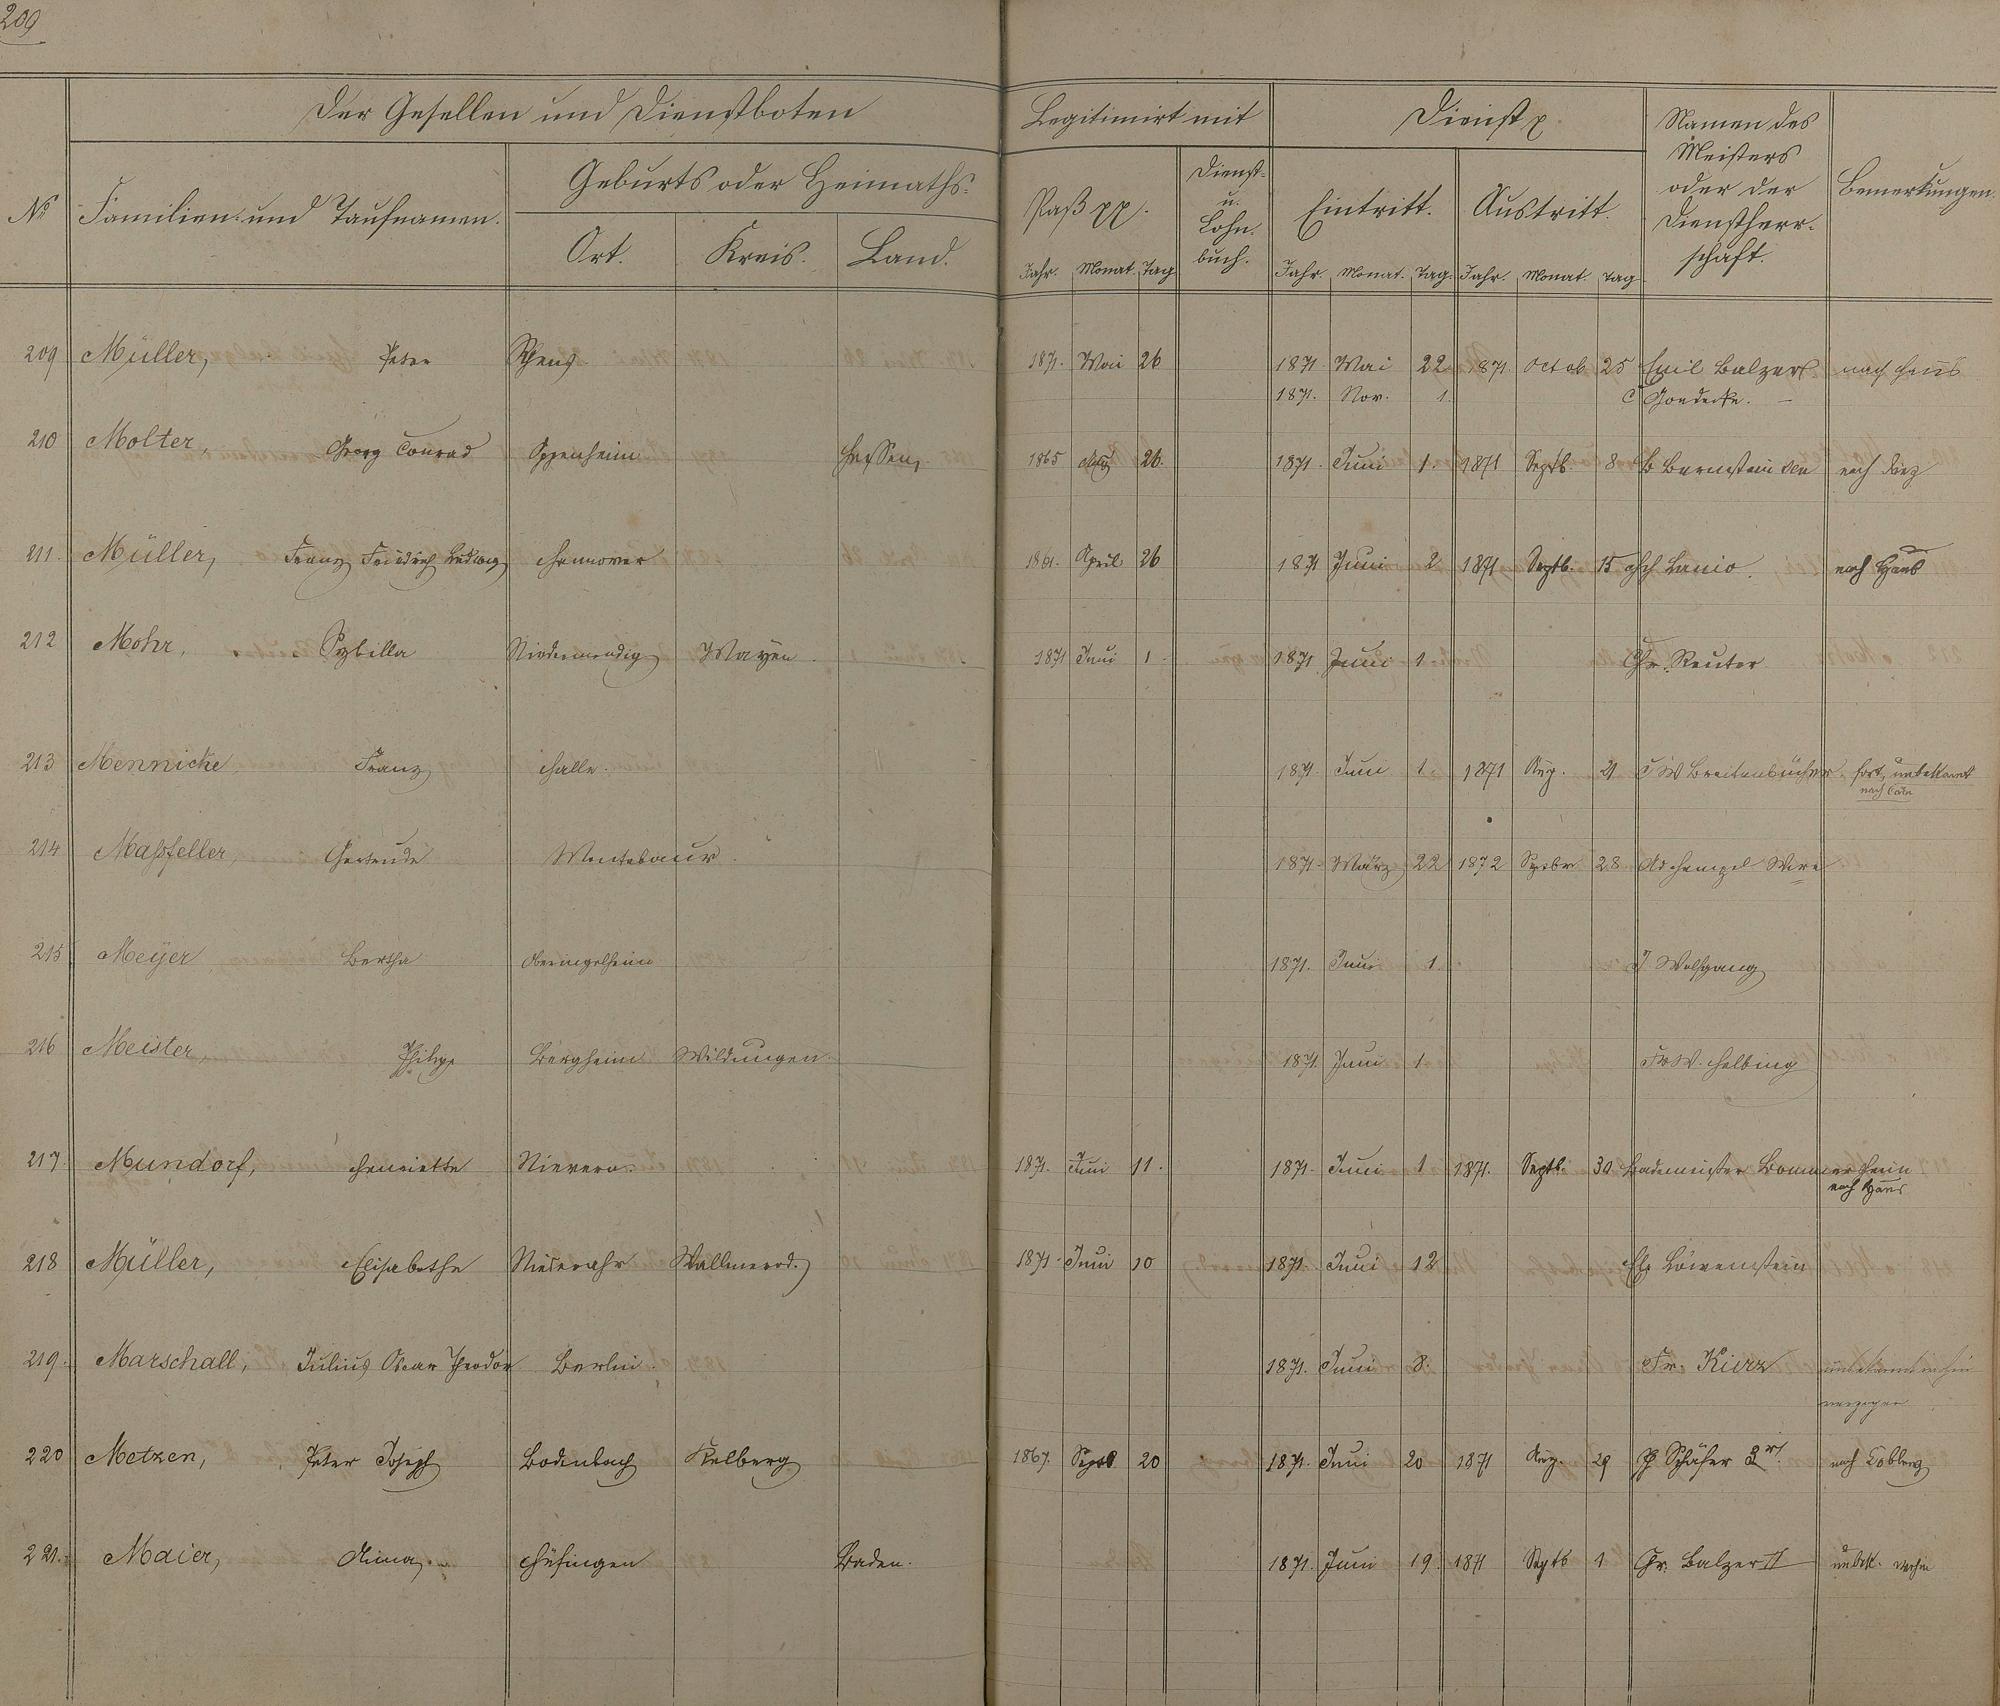 209
Der Gesellen und Dienstboten
Legitimirt mit
Dienst
Namen des Meisters oder der Dienstherr-schaft.
Bemerkungen.
No
Familien- und Taufnamen.
Geburts oder Heimaths-
Ort. Kreis. Land.
Paß pp.
Dienst- u. Lohn-buch.
Eintritt. Austritt.
Jahr. Monat. Tag Jahr. Monat. Tag. Jahr. Monat. Tag
209 Müller, Peter Rhens 1871. Mai 26 1871 Mai 22 1871 Octob 25 Emil Balzer nach Haus
1871. Nov. 1. C
210 Molter, Georg Conrad Oppenheim Hessen 1865 Aug 26. 1871. Juni 1. 1871 Septb. 8 B Bernstein nach Diez
211. Müller, Franz Friedrich Ludwig Hannover April 26 1871 Juni 2 1871 Septb. 15 Lanio. nach Haus
212 Mohr, Sybilla Niedermendig Mayen. 1871 Juni 1. 1871 Juni 1 Chr. Reuter
213 Mennicke, Franz Halle. 1871. Juni 1. 1871 Aug. 21 C W Breitenbücher. fort, unbekannt
nach Cöln
214 Maßfeller, Gertrude Montabaur. 1871. März 22 1872 28 Ad Hempel Wwe
215 Meyer Bertha Oberingelheim 1871. Juni 1. J Wolfgang
216 Meister, Philipp Bergheim Wildungen. 1871. Juni 1 W. Helbing
217. Mundorf, Henriette Nievern. 1871. Juni 11. 1871. Juni 1 1871. Septb. 30 Bademeister Bommersheim
nach Haus
218 Müller, Elisabetha Niederahr Wallmerod. 1871. Juni 10 1871. Juni 12 Löwenstein
219. Marschall, Julius Oscar Theodor Berlin. 1871. Juni 8. Fr. Kurz unbekannt wohin
verzogen
220 Metzen, Peter Joseph Bodenbach Kelberg 1867. Septb 20 1871. Juni 20 1871 Aug. 29 P Schäfer 3r. nach Coblenz
221. Maier, Anna Hüfingen Baden. 1871. Juni 19. 1871 Septb 1 Chr. Balzer II unbek. wohin